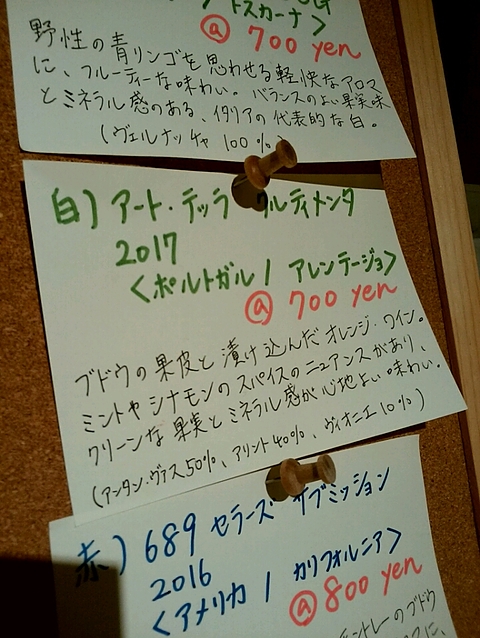 トスカーナ>
@ 700 yen
野性の青リンゴを思わせる軽快なアロマ
に、フルーティーな味わい。バランスのよい果実味
とミネラル感のある、イタリアの代表的な白。
(ヴェルナッチャ 100%)
白) アート・テッラ クルティメンタ
2017
<ポルトガル / アレンテージョ>
@ 700 yen
ブドウの果皮と漬け込んだオレンジ・ワイン。
ミントやシナモンのスパイスのニュアンスがあり、
クリーンな果実とミネラル感が心地よい味わい。
(アンタン・ヴァス50%、アリント40%、ヴィオニエ10%)
赤) 689 セラーズ サブミッション
2016
<アメリカ / カリフォルニア>
@ 800 yen
のブドウ